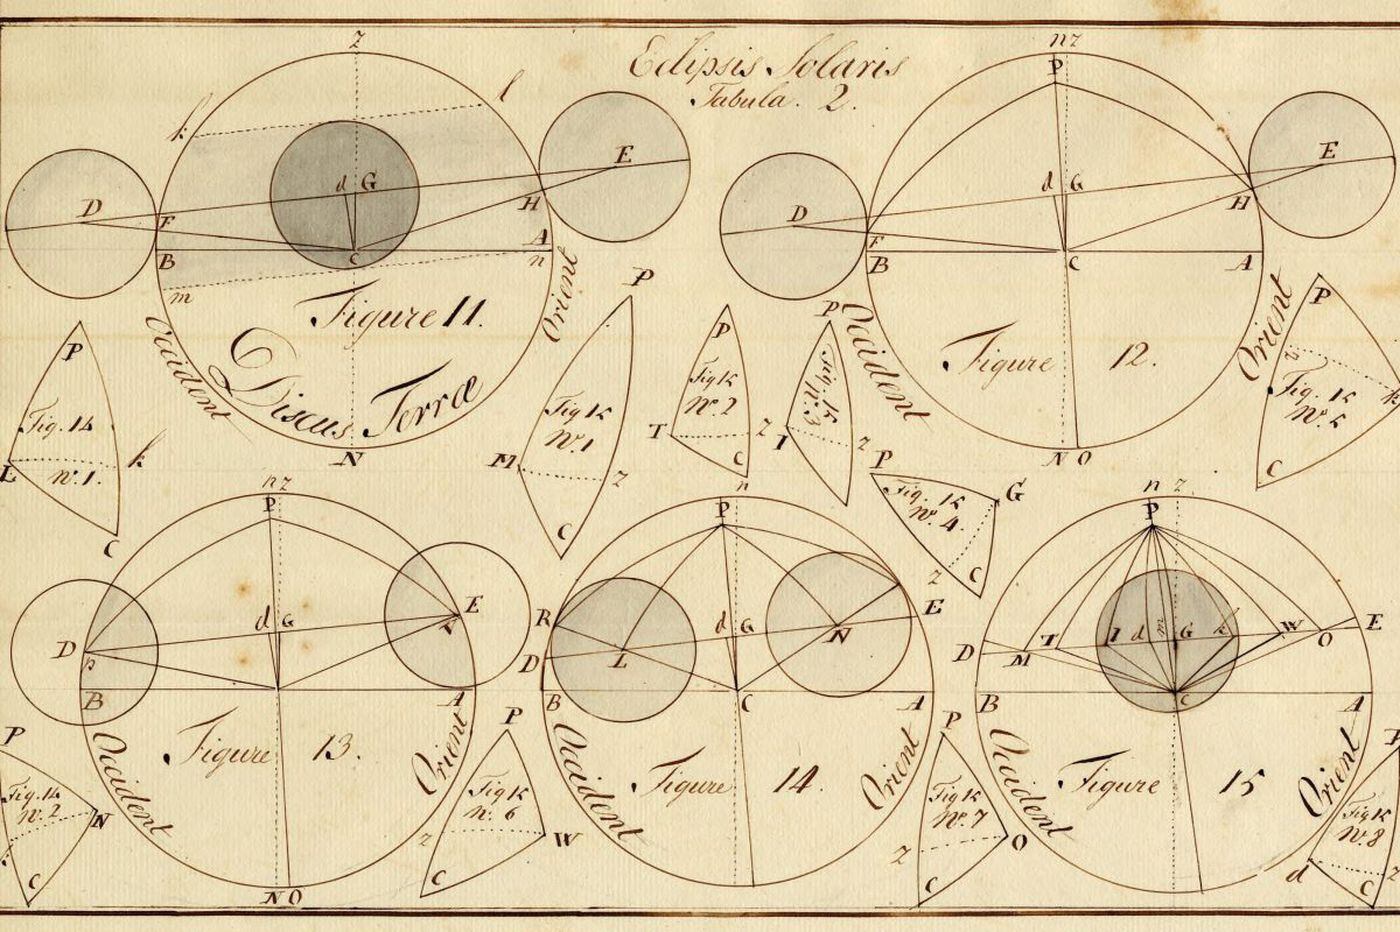 Eclipsis Solaris
Tabula. 2.
z
k
l
D
F
B
m
d
G
C
H
A
n
E
Figure 11.
Discus Terræ
Occident
Orient
N
n z
P
D
F
B
d
G
C
H
A
E
Figure 12.
Occident
Orient
N O
P
Fig. 14
L
k
N. 1.
C
P
Fig 15
N. 1
M
z
C
P
Fig 15
N. 2
T
z
C
P
Fig. 15
N. 3
I
z
P
Fig. 15
N. 4.
G
z
C
P
z
Fig. 15
N. 5
k
C
n z
P
D
B
d
G
E
A
Figure 13.
Occident
Orient
N O
n
P
R
D
B
L
d
G
C
N
E
A
Figure 14.
Occident
Orient
n z
P
D
M
T
I
d
m
G
k
W
O
E
B
C
A
Figure 15
Occident
Orient
P
Fig. 14
N. 2
N
C
P
Fig 15
N. 6
z
W
C
P
Fig 15
N. 7
z
O
C
P
Fig 15
N. 8
d
z
C